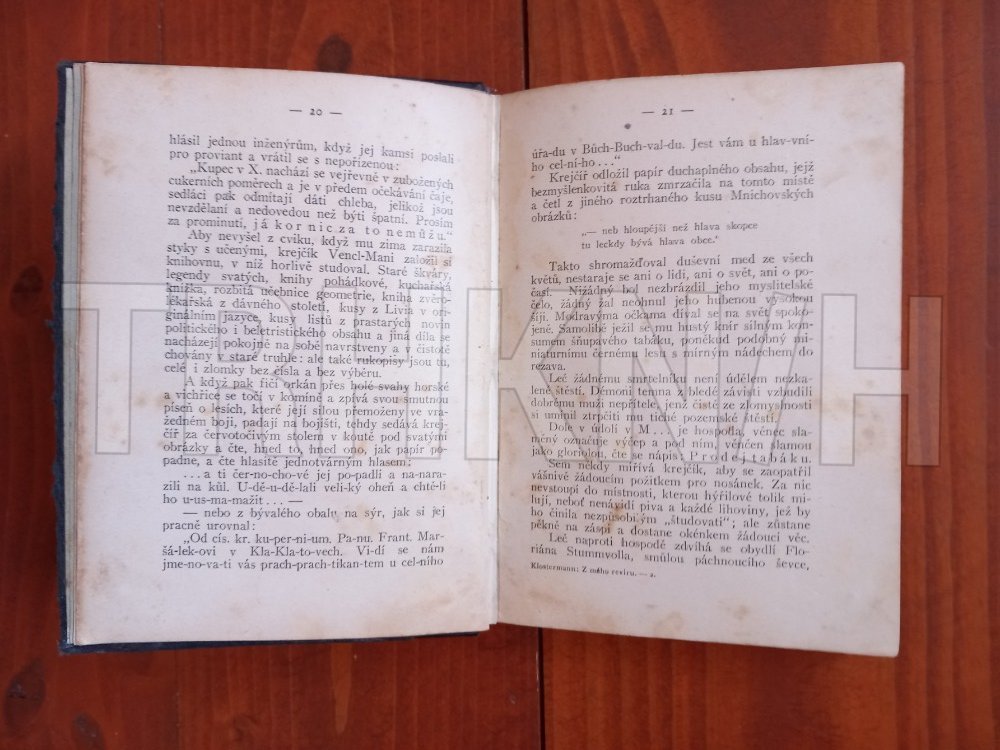 — 20 —
hlásil jednou inženýrům, když jej kamsi poslali
pro proviant a vrátil se s nepořízenou:
„Kupec v X. nachází se vejřevně v zubožených
cukerních poměrech a je v předem očekávání čaje,
sedláci pak odmítají dáti chleba, jelikož jsou
nevzdělaní a nedovedou než býti špatní. Prosím
za prominutí, já kornic za to nemůžu.“
Aby nevyšel z cviku, když mu zima zarazila
styky s učenými, krejčík Vencl-Mani založil si
knihovnu, v níž horlivě studoval. Staré škváry,
legendy svatých, knihy pohádkové, kuchařská
knížka, rozbitá učebnice geometrie, kniha zvěro-
lékařská z dávného století, kusy z Livia v ori-
ginálním jazyce, kusy listů z prastarých novin
politického i beletristického obsahu a jiná díla se
nacházejí pokojně na sobě navrstveny a v čistotě
chovány v staré truhle: ale také rukopisy jsou tu,
celé i zlomky bez čísla a bez výběru.
A když pak fičí orkán přes holé svahy horské
a vichřice se točí v komíně a zpívá svou smutnou
píseň o lesích, které její silou přemoženy ve vra-
žedném boji, padají na bojišti, tehdy sedává krej-
číř za červotočivým stolem v koutě pod svatými
obrázky a čte, hned to, hned ono, jak papír po-
padne, a čte hlasitě jednotvárným hlasem:
. . . a ti čer-no-cho-vé jej po-padli a na-nara-
zili na kůl. U-dě-u-dě-lali veli-ký oheň a chtě-li
ho u-us-ma-mažit . . . —
— nebo z bývalého obalu na sýr, jak si jej
pracně urovnal:
„Od cís. kr. ku-per-ni-um. Pa-nu. Frant. Mar-
šá-lek-ovi v Kla-Kla-to-vech. Vi-dí se nám
jme-no-va-ti vás prach-prach-tikan-tem u cel-ního
— 21 —
úřa-du v Bůch-Buch-val-du. Jest vám u hlav-vní-
ho cel-ní-ho . . .“
Krejčíř odložil papír duchaplného obsahu, jejž
bezmyšlenkovitá ruka zmrzačila na tomto místě
a četl z jiného roztrhaného kusu Mnichovských
obrázků:
„— neb hloupější než hlava skopce
tu leckdy bývá hlava obce.“
Takto shromažďoval duševní med ze všech
květů, nestaraje se ani o lidi, ani o svět, ani o po-
časí. Nižádný bol nezbrázdil jeho myslitelské
čelo, žádný žal neohnul jeho hubenou vysokou
šíji. Modravýma očkama díval se na svět spoko-
jeně. Samolibě ježil se mu hustý knír silným kon-
sumem šňupavého tabáku, poněkud podobný mi-
niaturnímu černému lesu s mírným nádechem do
rezava.
Leč žádnému smrtelníku není údělem nezka-
lené štěstí. Démoni temna z bledé závisti vzbudili
dobrému muži nepřítele, jenž čistě ze zlomyslnosti
si umínil ztrpčiti mu tiché pozemské štěstí.
Dole v údolí v M . . . je hospoda, věnec sla-
měný označuje výčep a pod ním, věnčen slamou
jako gloriolou, čte se nápis: Prodej tabáku.
Sem někdy mířívá krejčík, aby se zaopatřil
vášnivě žádoucím požitkem pro nosánek. Za nic
nevstoupí do místnosti, kterou hýřilové tolik mi-
lují, neboť nenávidí piva a každé lihoviny, jež by
ho činila nezpůsobným „študovati“; ale zůstane
pěkně na záspi a dostane okénkem žádoucí věc.
Leč naproti hospodě zdvíhá se obydlí Flo-
riána Stummvolla, smůlou páchnoucího ševce,
Klostermann: Z mého revíru. — 2.
TRH KNIH